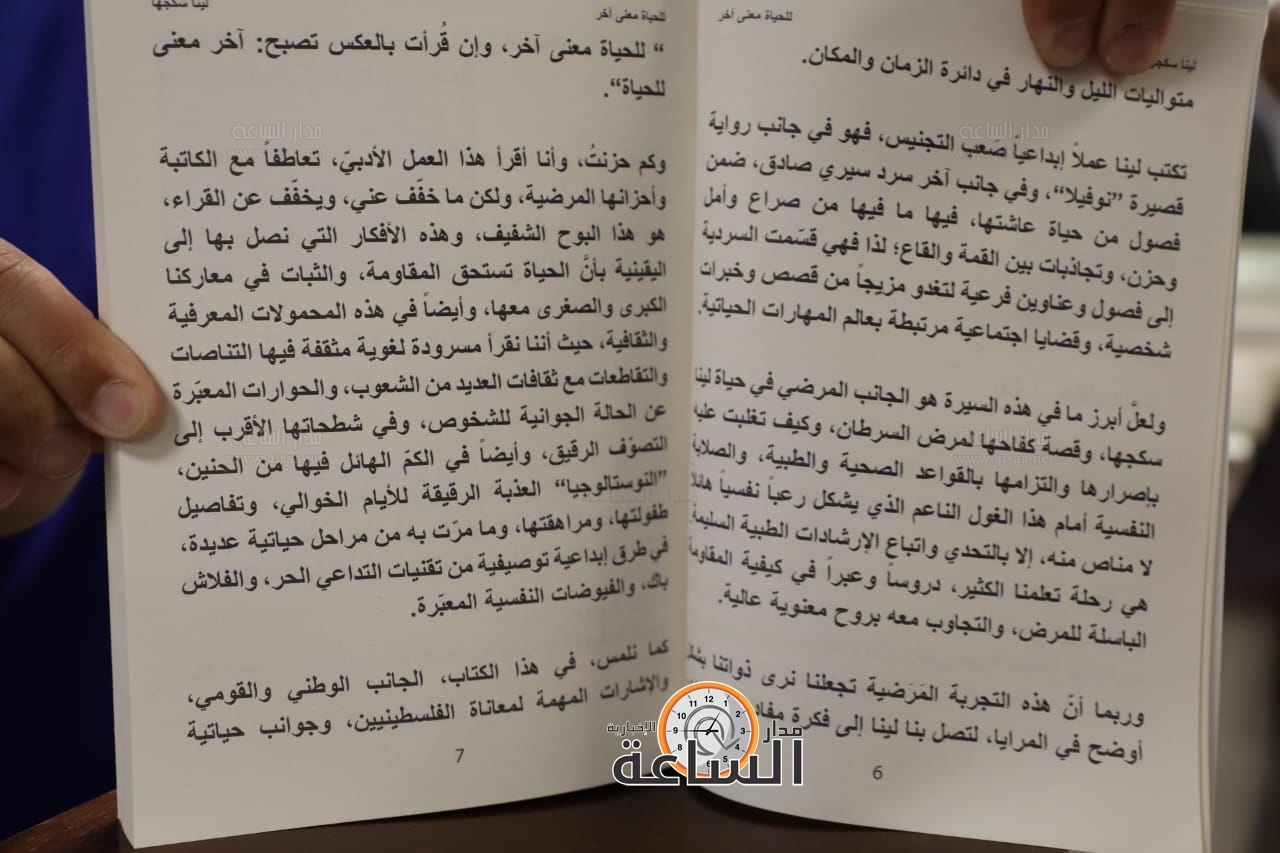 للحياة معنى أخر
لينا سكجها
متواليات الليل والنهار في دائرة الزمان والمكان.
تكتب لينا عملاً إبداعياً صَعبَ التجنيس، فهو في جانب رواية
قصيرة ”نوفيلا“، وفي جانب آخر سرد سيري صادق، ضمن
فصول من حياة عاشتها، فيها ما فيها من صراع وأمل
وحزن، وتجاذبات بين القمة والقاع؛ لذا فهي قسّمت السردية
إلى فصول وعناوين فرعية لتغدو مزيجاً من قصص وخبرات
شخصية، وقضايا اجتماعية مرتبطة بعالم المهارات الحياتية.
ولعلَّ أبرز ما في هذه السيرة هو الجانب المرضي في حياة لينا
سكجها، وقصة كفاحها لمرض السرطان، وكيف تغلبت عليه
بإصرارها والتزامها بالقواعد الصحية والطبية، والصلابة
النفسية أمام هذا الغول الناعم الذي يشكل رعباً نفسياً هائلاً
لا مناص منه، إلا بالتحدي واتباع الإرشادات الطبية السليمة.
هي رحلة تعلمنا الكثير، دروساً وعبراً في كيفية المقاومة
الباسلة للمرض، والتجاوب معه بروح معنوية عالية.
وربما أنّ هذه التجربة المَرَضية تجعلنا نرى ذواتنا بشكل
أوضح في المرايا، لتصل بنا لينا إلى فكرة
6
للحياة معنى أخر
لينا سكجها
” للحياة معنى آخر، وإن قُرأت بالعكس تصبح: آخر معنى
للحياة“.
وكم حزنتُ، وأنا أقرأ هذا العمل الأدبيّ، تعاطفاً مع الكاتبة
وأحزانها المرضية، ولكن ما خفّف عني، ويخفّف عن القراء،
هو هذا البوح الشفيف، وهذه الأفكار التي نصل بها إلى
اليقينية بأنَّ الحياة تستحق المقاومة، والثبات في معاركنا
الكبرى والصغرى معها، وأيضاً في هذه المحمولات المعرفية
والثقافية، حيث أننا نقرأ مسرودة لغوية مثقفة فيها التناصات
والتقاطعات مع ثقافات العديد من الشعوب، والحوارات المعبّرة
عن الحالة الجوانية للشخوص، وفي شطحاتها الأقرب إلى
التصوّف الرقيق، وأيضاً في الكمّ الهائل فيها من الحنين،
”النوستالوجيا“ العذبة الرقيقة للأيام الخوالي، وتفاصيل
طفولتها، ومراهقتها، وما مرّت به من مراحل حياتية عديدة،
في طرق إبداعية توصيفية من تقنيات التداعي الحر، والفلاش
باك، والفيوضات النفسية المعبّرة.
كما نلمس، في هذا الكتاب، الجانب الوطني والقومي،
والإشارات المهمة لمعاناة الفلسطينيين، وجوانب حياتية
7
مدار الساعة
الإخبارية
مدار الساعة
www.alsaa.net